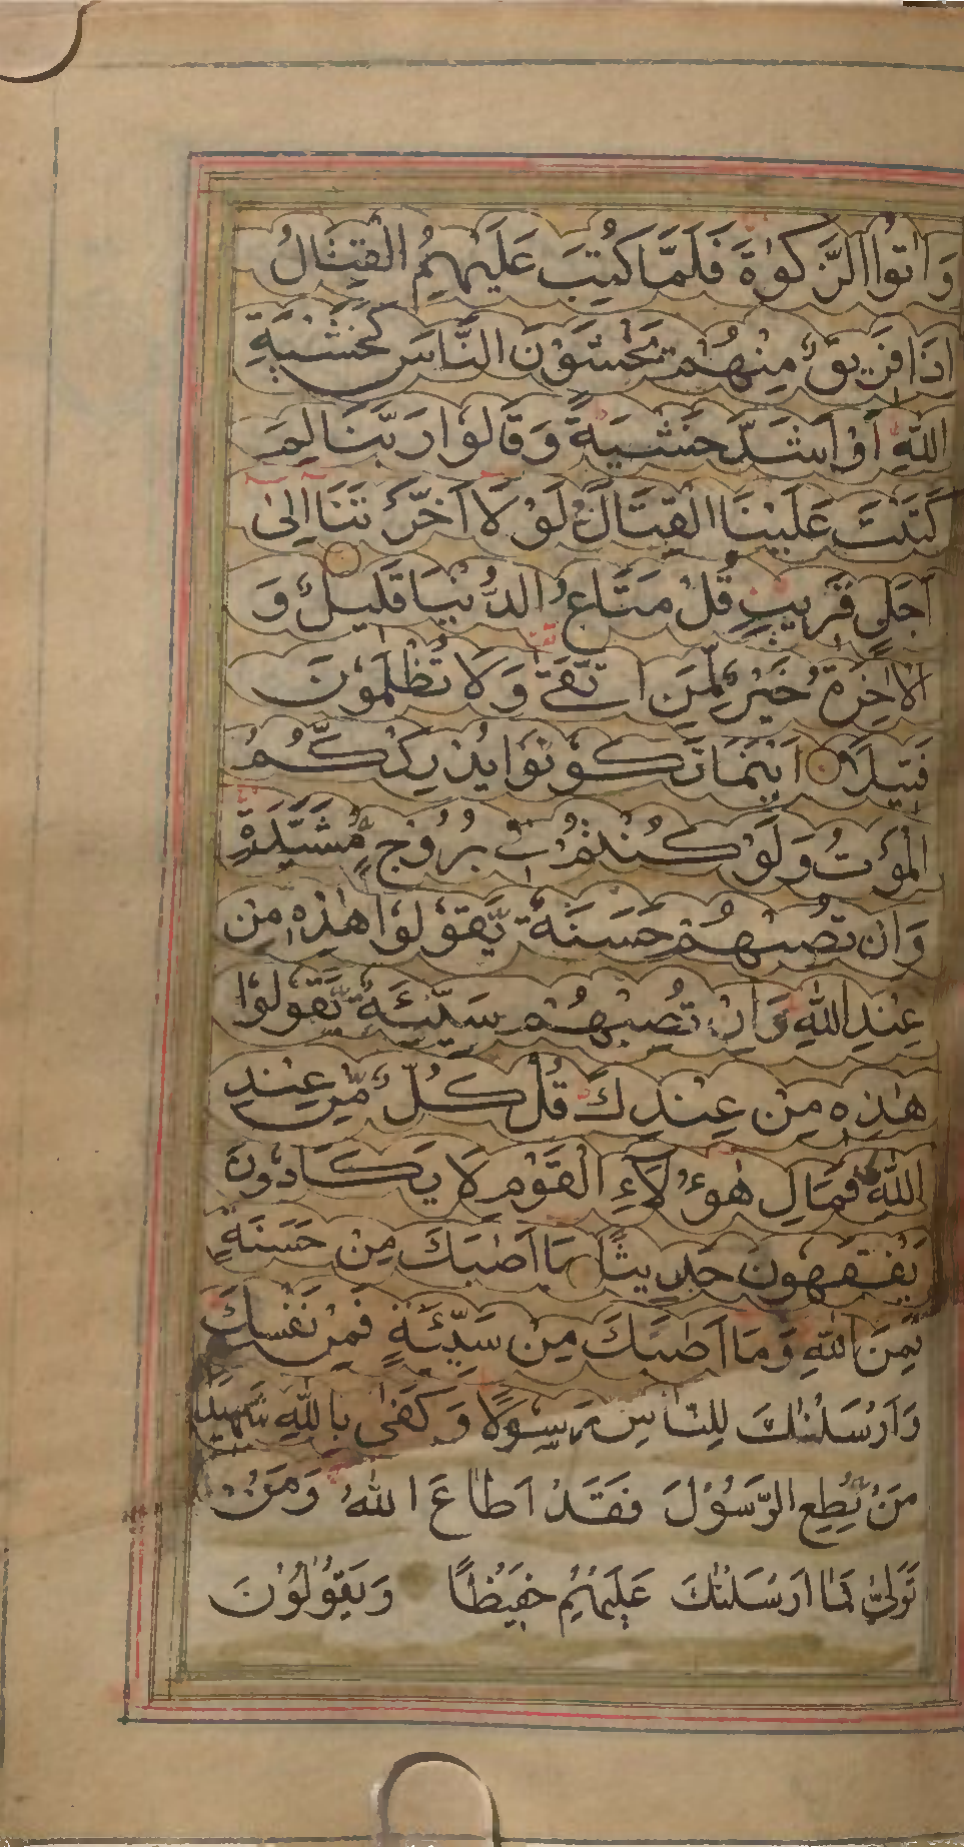 وَاٰتُوا الزَّكٰوةَ فَلَمَّا كُتِبَ عَلَيْهِمُ الْقِتَالُ
اِذَا فَرِيْقٌ مِنْهُمْ يَخْشَوْنَ النَّاسَ كَخَشْيَةِ
اللهِ اَوْ اَشَدَّ خَشْيَةً وَقَالُوْا رَبَّنَا لِمَ
كَتَبْتَ عَلَيْنَا الْقِتَالَ لَوْلَا اَخَّرْتَنَا اِلٰى
اَجَلٍ قَرِيْبٍ قُلْ مَتَاعُ الدُّنْيَا قَلِيْلٌ وَ
الْاٰخِرَةُ خَيْرٌ لِّمَنِ اتَّقٰى وَلَا تُظْلَمُوْنَ
فَتِيْلًا اَيْنَمَا تَكُوْنُوْا يُدْرِكْكُّمُ
الْمَوْتُ وَلَوْ كُنْتُمْ فِيْ بُرُوْجٍ مُّشَيَّدَةٍ
وَاِنْ تُصِبْهُمْ حَسَنَةٌ يَّقُوْلُوْا هٰذِهٖ مِنْ
عِنْدِ اللهِ وَاِنْ تُصِبْهُمْ سَيِّئَةٌ يَّقُوْلُوْا
هٰذِهٖ مِنْ عِنْدِكَ قُلْ كُلٌّ مِّنْ عِنْدِ
اللهِ فَمَالِ هٰؤُلَاءِ الْقَوْمِ لَا يَكَادُوْنَ
يَفْقَهُوْنَ حَدِيْثًا مَا اَصٰبَكَ مِنْ حَسَنَةٍ
فَمِنَ اللهِ وَمَا اَصٰبَكَ مِنْ سَيِّئَةٍ فَمِنْ نَفْسِكَ
وَاَرْسَلْنٰكَ لِلنَّاسِ رَسُوْلًا وَكَفٰى بِاللهِ شَهِيْدًا
مَنْ يُّطِعِ الرَّسُوْلَ فَقَدْ اَطَاعَ اللهَ وَمَنْ
تَوَلّٰى فَمَا اَرْسَلْنٰكَ عَلَيْهِمْ حَفِيْظًا وَيَقُوْلُوْنَ